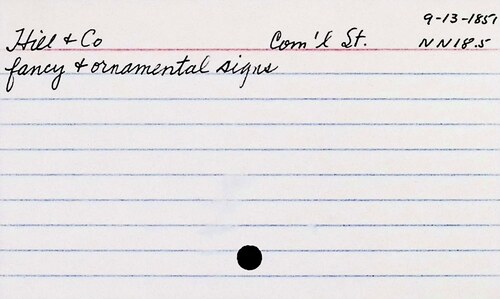 9-13-1851
Hill & Co Com'l St. NN18.5
fancy & ornamental signs